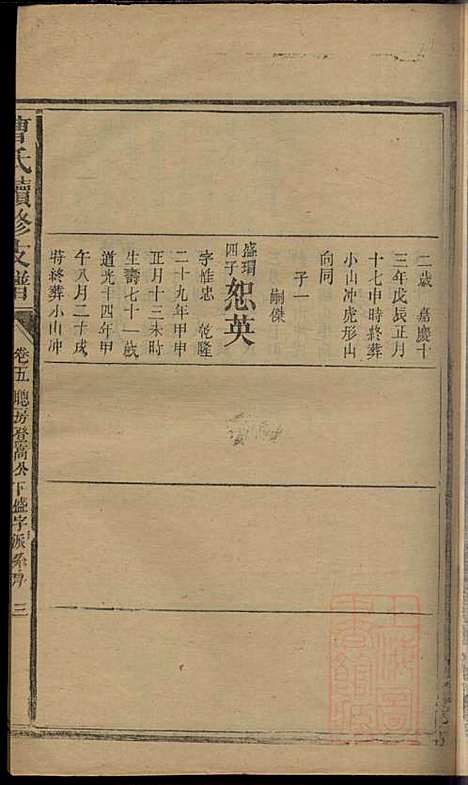 二歲　嘉慶十
三年戊辰正月
十七申時終葬
小山冲虎形山
向同
子一
嗣傑
盛瑂四子 恕英
字惟忠　乾隆
二十九年甲申
正月十三未時
生壽七十一歲
道光十四年甲
午八月二十戌
時終葬小山冲
曹氏續修支譜
卷五
聰房登高公下盛字派系序
三